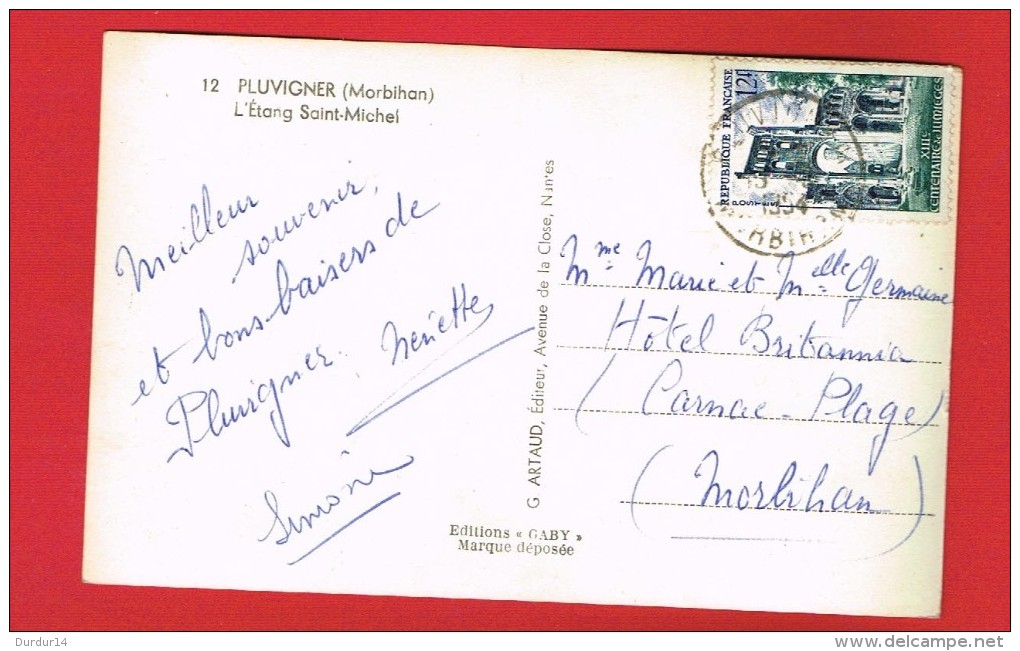 12 PLUVIGNER (Morbihan)
L'Étang Saint-Michel
Meilleur
souvenir,
et bons baisers de
Pluvigner. Neriette
Simone
Editions « GABY »
Marque déposée
G. ARTAUD, Éditeur, Avenue de la Close, Nantes
REPUBLIQUE FRANÇAISE
12f
POSTES
XIIIe
CENTENAIRE DE JUMIEGES
1954
MORBIHAN
Mme Marie et Melle Germaine
Hôtel Britannia
(Carnac-Plage)
(Morbihan)
Durdur14
www.delcampe.net